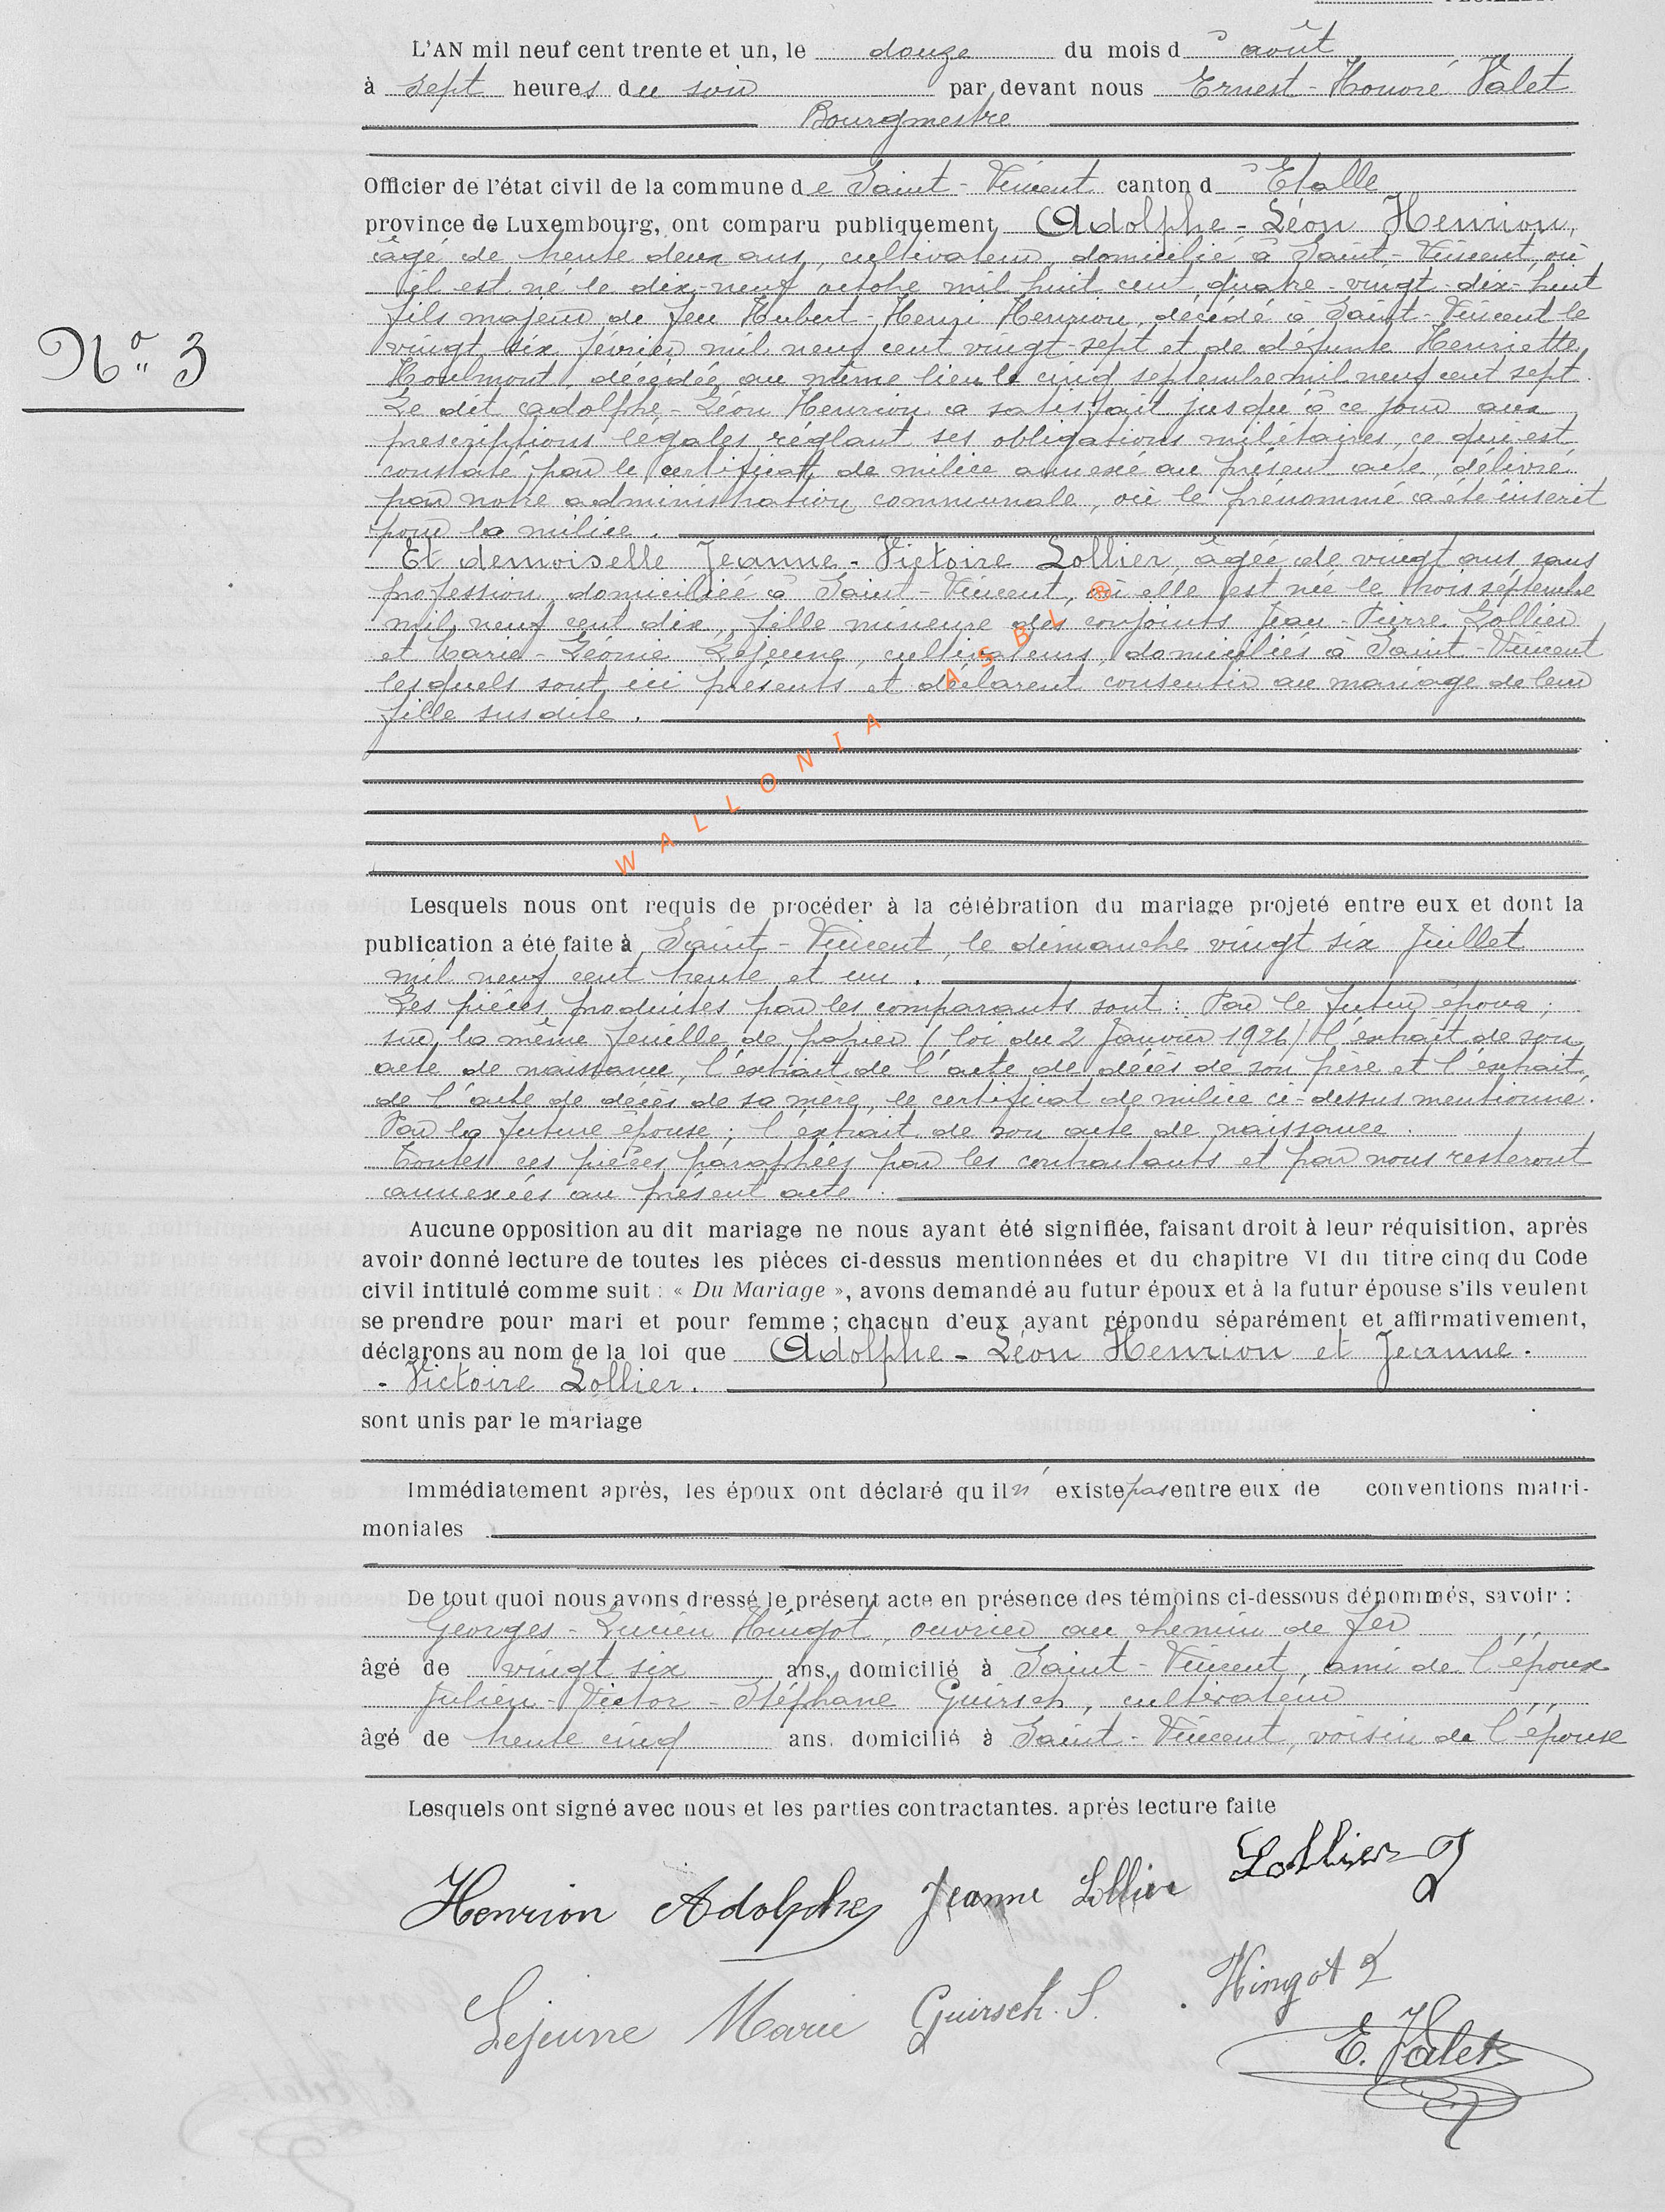 L'AN mil neuf cent trente et un, le douze du mois d'août
à sept heures du soir par devant nous Ernest-Honoré Valet
Bourgmestre
Officier de l'état civil de la commune de Saint-Vincent canton d'Etalle
province de Luxembourg, ont comparu publiquement Adolphe-Léon Henrion,
âgé de trente deux ans, cultivateur, domicilié à Saint-Vincent, où
il est né le dix-neuf octobre mil huit cent quatre-vingt-dix-huit
fils majeur de feu Hubert-Henri Henrion, décédé à Saint-Vincent le
vingt six février mil neuf cent vingt-sept et de défunte Henriette
décédée au même lieu le cinq septembre mil neuf cent sept.
Le dit Adolphe-Léon Henrion a satisfait jusqu'à ce jour aux
prescriptions légales réglant ses obligations militaires, ce qui est
constaté par le certificat de milice annexé au présent acte, délivré
par notre administration communale, où le prénommé a été inscrit
pour la milice.
Et demoiselle Jeanne-Victoire Lollier, âgée de vingt ans, sans
profession, domiciliée à Saint-Vincent, où elle est née le trois septembre
mil neuf cent dix, fille mineure des conjoints Jean-Pierre Lollier
et Marie-Léonie Lejeune, cultivateurs, domiciliés à Saint-Vincent
lesquels sont ici présents et déclarent consentir au mariage de leur
fille susdite.
WALLONIA ASBL ®
N° 3
Lesquels nous ont requis de procéder à la célébration du mariage projeté entre eux et dont la
publication a été faite à Saint-Vincent, le dimanche vingt six juillet
mil neuf cent trente et un.
Les pièces produites par les comparants sont : Par le futur époux ;
sur la même feuille de papier (loi du 2 janvier 1926) l'extrait de son
acte de naissance, l'extrait de l'acte de décès de son père et l'extrait
de l'acte de décès de sa mère, le certificat de milice ci-dessus mentionné.
Par la future épouse ; l'extrait de son acte de naissance.
Toutes ces pièces paraphées par les contractants et par nous resteront
annexées au présent acte.
Aucune opposition au dit mariage ne nous ayant été signifiée, faisant droit à leur réquisition, après
avoir donné lecture de toutes les pièces ci-dessus mentionnées et du chapitre VI du titre cinq du Code
civil intitulé comme suit : « Du Mariage », avons demandé au futur époux et à la futur épouse s'ils veulent
se prendre pour mari et pour femme ; chacun d'eux ayant répondu séparément et affirmativement,
déclarons au nom de la loi que Adolphe-Léon Henrion et Jeanne-
-Victoire Lollier.
sont unis par le mariage
Immédiatement après, les époux ont déclaré qu'il n'existe pas entre eux de conventions matri-
moniales
De tout quoi nous avons dressé le présent acte en présence des témoins ci-dessous dénommés, savoir :
Georges-Lucien Hingot, ouvrier au chemin de fer
âgé de vingt six ans, domicilié à Saint-Vincent, ami de l'époux
Julien-Victor-Stéphane Guirsch, cultivateur
âgé de trente cinq ans, domicilié à Saint-Vincent, voisin de l'épouse
Lesquels ont signé avec nous et les parties contractantes. après lecture faite
Henrion Adolphe Jeanne Lollier Lollier J
Lejeune Marie Guirsch. S. Hingot L
E. Valet